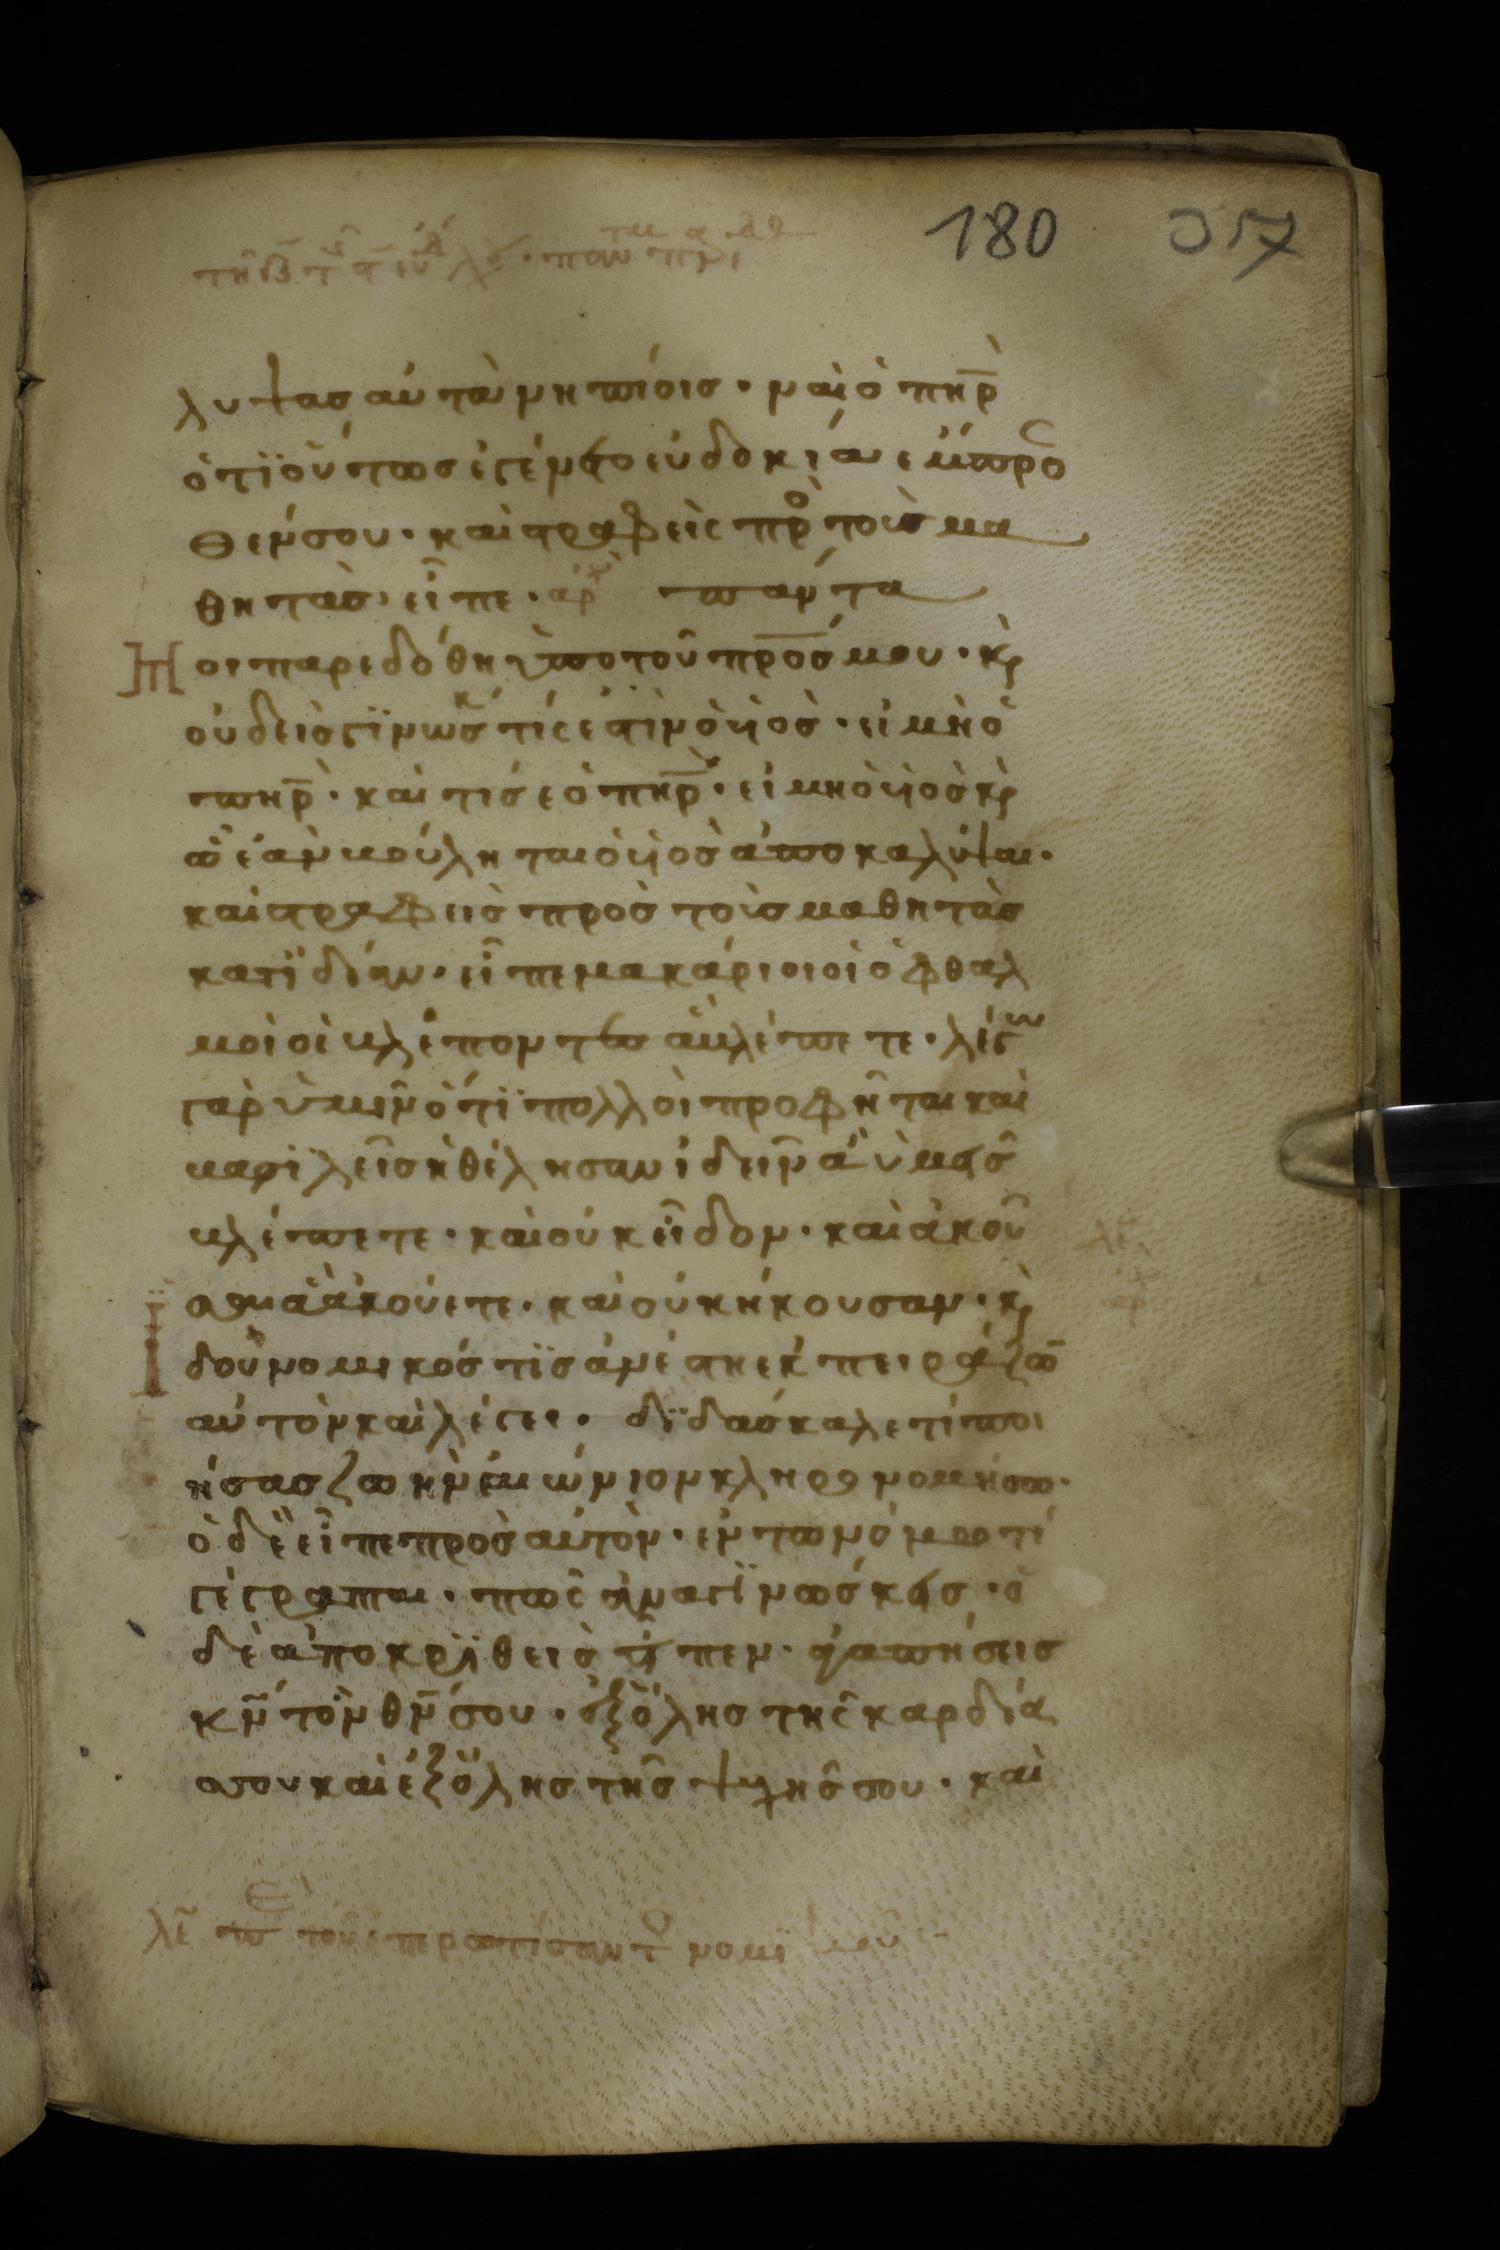 180 357
λυψας αὐτὰ νηπίοις · ναὶ ὁ πη̅ρ
ὅτϊ οὕτως ἐγένετο εὐδοκία ἔμπρο
σθέν σου · καὶ στραφεὶς πρὸ τοὺς μα
θητὰς · εἶπε · ἀρχ πάντα
μοι παρεδόθη ὑπο τοῦ πρ̅ο̅ς μου · κ(αὶ)
οὐδεὶς γϊνώσκ τίς ἐστιν ὁ υἱὸς · εἰ μὴ ὁ
πηρ̅ · καὶ τίς ἐ ὁ πηρ̅ · εἰ μὴ ὁ υἱὸς κ(αὶ)
ᾧ ἐὰν βούληται ὁ υἱὸς ἀποκαλύψαι ·
καὶ στραφεὶς πρὸς τοὺς μαθητὰς
κατϊδίαν · εἶπε μακάριοι οἱ ὀφθαλ
μοὶ οἱ βλέποντες ἃ βλέπετε · λέγω
γὰρ ὑμῖν ὅτϊ πολλοὶ προφῆται καὶ
βασϊλεῖς ἠθέλησαν ἰδεῖν ἃ ὑμεῖς
βλέπετε · καὶ οὐκ εἶδον · καὶ ἀκοῦ
σαι ἃ ἀκούετε · καὶ οὐκ ἤκουσαν · κ(αὶ)
ἰδοὺ νομικός τϊς ἀνέστη ἐκπειράζω̅
αὐτὸν καὶ λέγει · δϊδάσκαλε τί ποι
ήσας ζωὴν αἰώνιον κληρονομήσω ·
ὁ δὲ εἶπε πρὸς αὐτὸν · ἐν τω νόμω τί
γέγραπται · πῶς ἀναγϊνώσκεις · ὁ
δὲ ἀποκρϊθεὶς εἶπεν · ἀγαπήσεις
κν̅ τὸν θν̅ σου · ἐξ ὅλης τῆς καρδία
σου καὶ ἐξ ὅλης τῆς ψυχῆς σου · καὶ